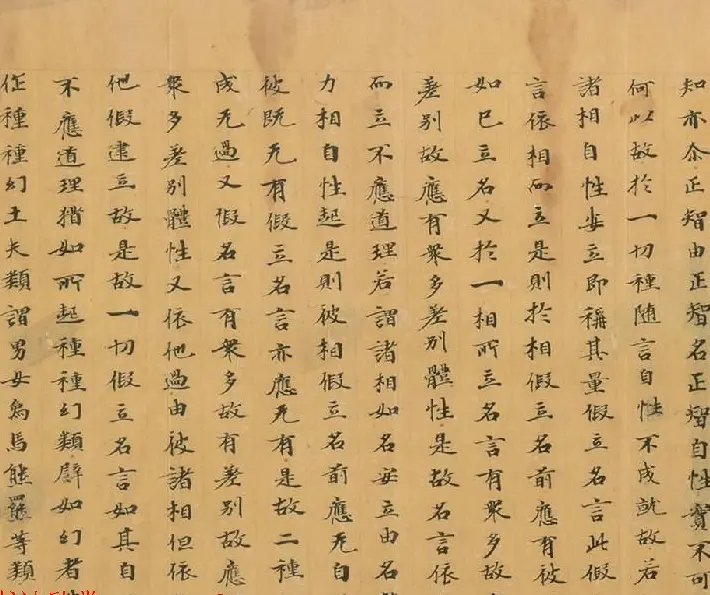 知亦尒正智由正智名正智自性實不可
何以故於一切種隨言自性不成就故若
諸相自性安立即稱其量假立名言此假
言依相而立是則於相假立名前應有彼
如已立名又於一相所立名言有衆多故
差別故應有衆多差別體性是故名言依
而立不應道理若謂諸相如名安立由名
力相自性起是則彼相假立名前應无自
彼既无有假立名言亦應无有是故二種
成无過又假名言有衆多故有差別故應
衆多差別體性又依他過由彼諸相但依
他假建立故是故一切假立名言如其自
不應道理猶如所起種種幻類譬如幻者
作種種幻士夫類謂男女象馬熊羆等類